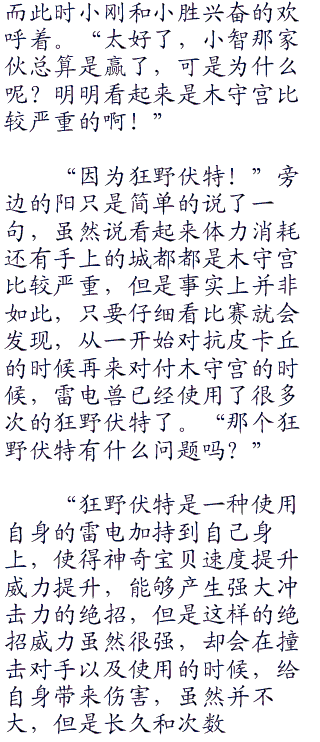 而此时小刚和小胜兴奋的欢
呼着。“太好了，小智那家
伙总算是赢了，可是为什么
呢？明明看起来是木守宫比
较严重的啊！”
“因为狂野伏特！”旁
边的阳只是简单的说了一
句，虽然说看起来体力消耗
还有手上的城都都是木守宫
比较严重，但是事实上并非
如此，只要仔细看比赛就会
发现，从一开始对抗皮卡丘
的时候再来对付木守宫的时
候，雷电兽已经使用了很多
次的狂野伏特了。“那个狂
野伏特有什么问题吗？”
“狂野伏特是一种使用
自身的雷电加持到自己身
上，使得神奇宝贝速度提升
威力提升，能够产生强大冲
击力的绝招，但是这样的绝
招威力虽然很强，却会在撞
击对手以及使用的时候，给
自身带来伤害，虽然并不
大，但是长久和次数